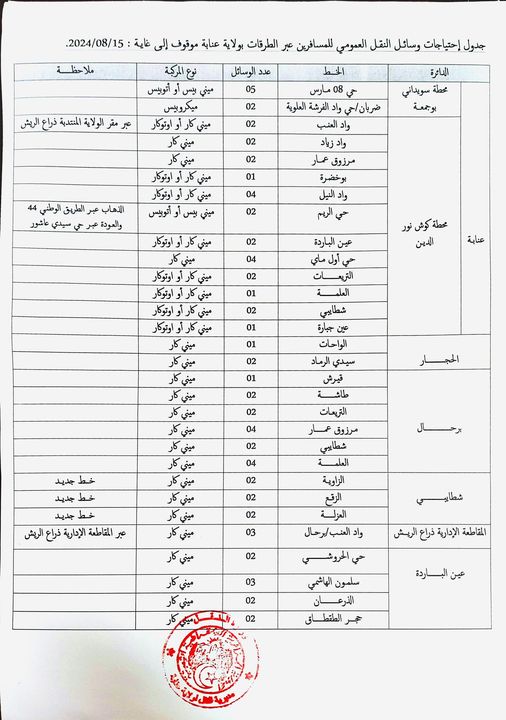 جدول إحتياجات وسائل النقل العمومي للمسافرين عبر الطرقات بولاية عنابة موقوف إلى غاية : 2024/08/15.
الدائرة الخط عدد الوسائل نوع المركبة ملاحظة
عنابة
محطة سويداني بوجمعة
حي 08 مارس 05 ميني بيس أو أتوبيس
ضربان/حي واد الفرشة العلوية 02 ميكروبيس
محطة كوش نور الدين
واد العنب 02 ميني كار أو اوتوكار عبر مقر الولاية المنتدبة ذراع الريش
واد زياد 02 ميني كار
مرزوق عمار 02 ميني كار
بوخضرة 01 ميني كار أو اوتوكار
واد النيل 04 ميني كار أو اوتوكار
حي الريم 02 ميني بيس أو أتوبيس الذهاب عبر الطريق الوطني 44
والعودة عبر حي سيدي عاشور
عين الباردة 02 ميني كار أو اوتوكار
حي أول ماي 04 ميني كار
التريعات 02 ميني كار أو اوتوكار
العلمة 01 ميني كار أو اوتوكار
شطايبي 02 ميني كار أو اوتوكار
عين جبارة 01 ميني كار أو اوتوكار
الحجار
الواحات 01 ميني كار
سيدي الرماد 02 ميني كار
برحال
قيرش 01 ميني كار
طاشة 02 ميني كار
التريعات 02 ميني كار
مرزوق عمار 04 ميني كار
شطايبي 02 ميني كار
العلمة 04 ميني كار
شطايبي
الزاوية 02 ميني كار خط جديد
الزقع 02 ميني كار خط جديد
العزلة 02 ميني كار خط جديد
المقاطعة الإدارية ذراع الريش واد العنب/برحال 03 ميني كار عبر المقاطعة الإدارية ذراع الريش
عين الباردة
حي الخروشي 02 ميني كار
سلمون الهاشمي 03 ميني كار
الذرعان 02 ميني كار
حجر الطقطاق 02 ميني كار